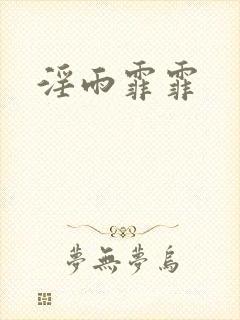 淫雨霏霏
夢無夢烏